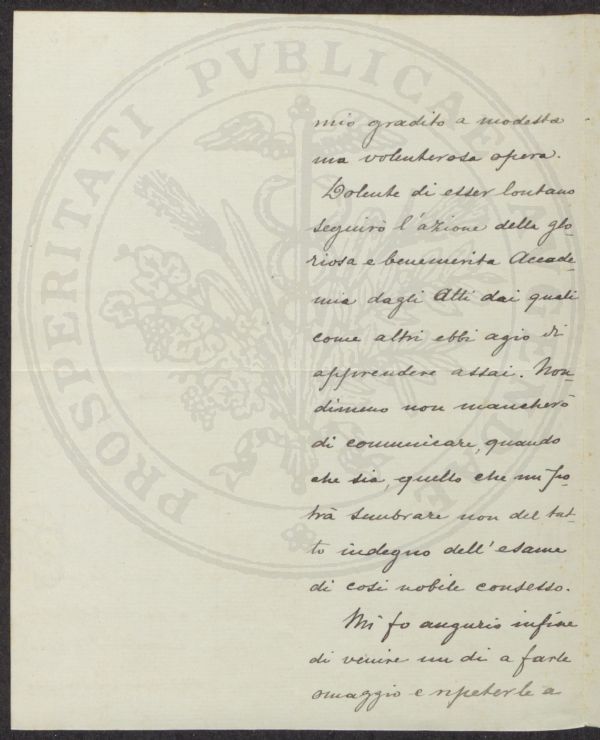 PROSPERITATI PVBLICAE AVGENDAE
mio gradito a modesta
ma volenterosa opera.
Dolente di esser lontano
seguirò l'azione della glo-
riosa e benemerita Accade-
mia dagli Atti dai quali
come altri ebbi agio di
apprendere assai. Non-
dimeno non mancherò
di comunicare, quando
che sia, quello che mi po-
trà sembrare non del tut-
to indegno dell'esame
di così nobile consesso.
Mi fo augurio infine
di venire un dì a farle
omaggio e ripeterle a